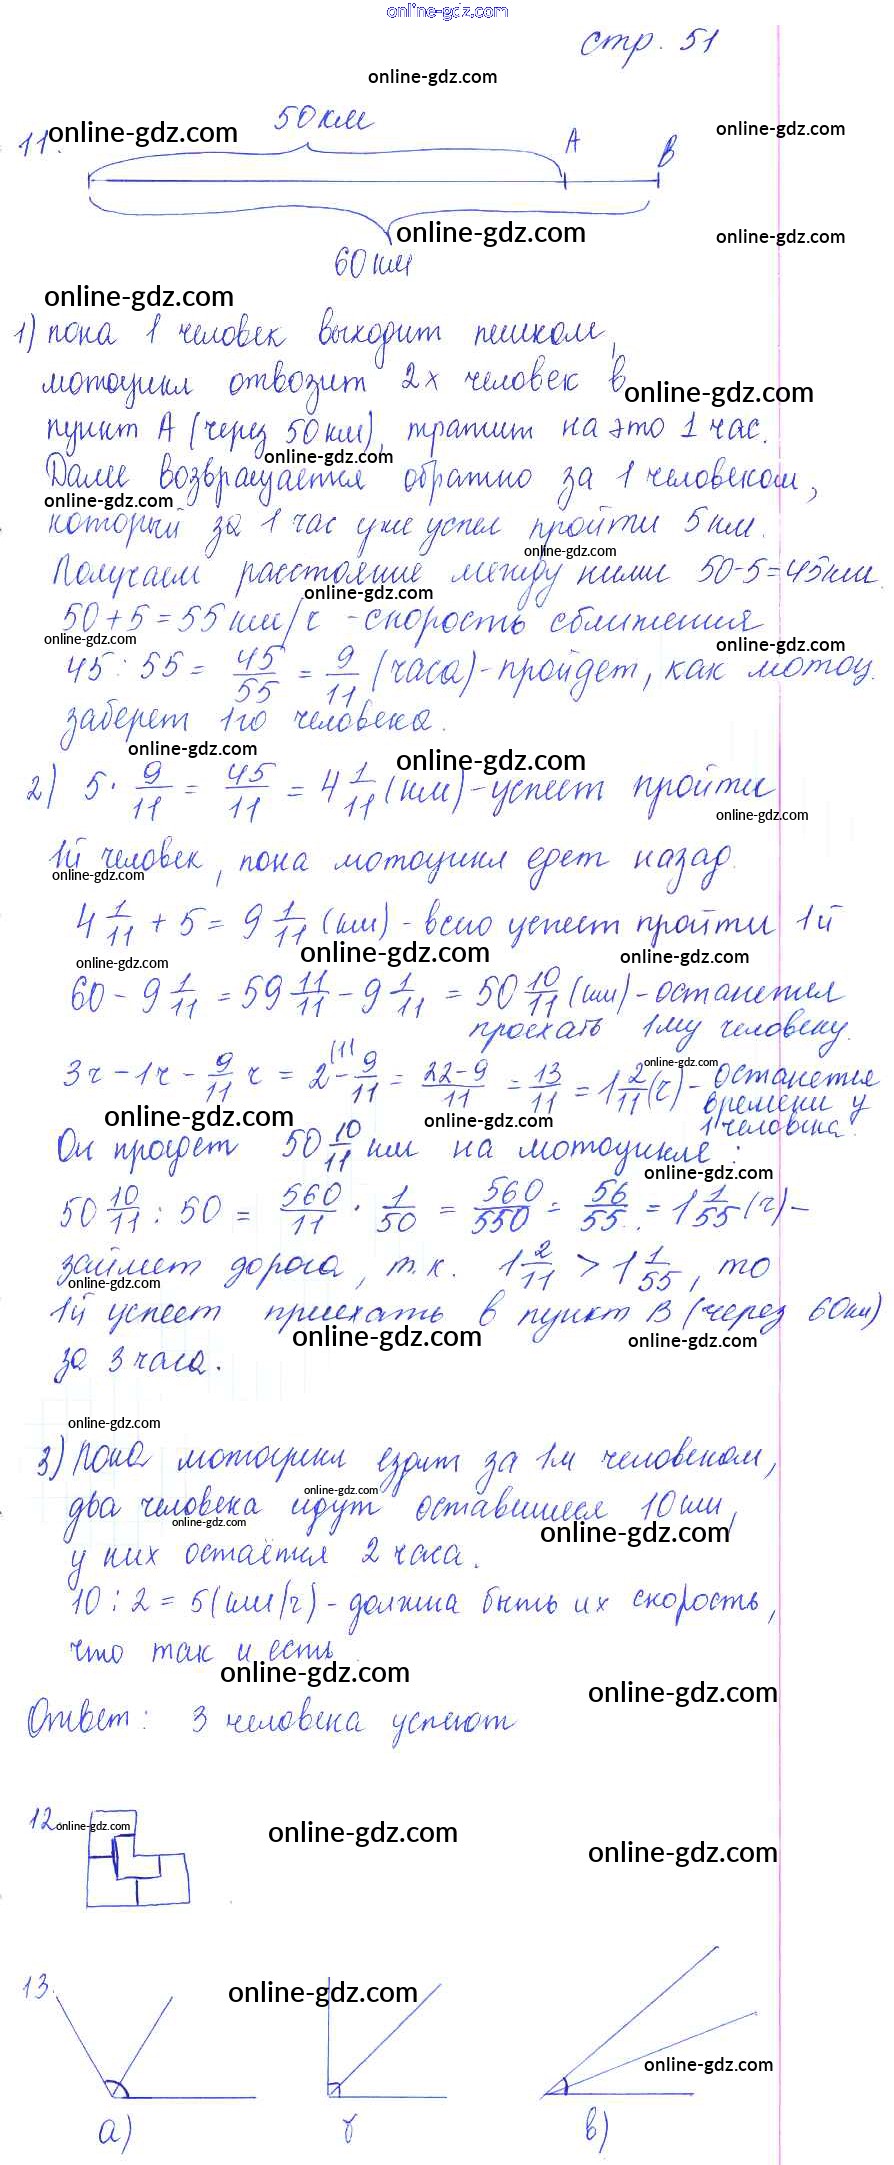 online-gdz.com
стр. 51
online-gdz.com
50 км
11. online-gdz.com
online-gdz.com
A
B
online-gdz.com
online-gdz.com
60 км
online-gdz.com
1) пока 1 человек выходит пешком,
мотоцикл отвозит 2х человек в
online-gdz.com
пункт А (через 50 км), тратит на это 1 час.
online-gdz.com
Далее возвращается обратно за 1 человеком,
online-gdz.com
который за 1 час уже успел пройти 5 км.
online-gdz.com
Получаем расстояние между ними 50-5=45км.
online-gdz.com
50 + 5 = 55 км/ч - скорость сближения
online-gdz.com
online-gdz.com
45 : 55 = 45/55 = 9/11 (часа) - пройдет, как мотоц.
заберет 1го человека.
online-gdz.com
online-gdz.com
2) 5 · 9/11 = 45/11 = 4 1/11 (км) - успеет пройти
online-gdz.com
1й человек, пока мотоцикл едет назад.
online-gdz.com
4 1/11 + 5 = 9 1/11 (км) - всего успеет пройти 1й
online-gdz.com
online-gdz.com
online-gdz.com
60 - 9 1/11 = 59 11/11 - 9 1/11 = 50 10/11 (км) - останется
проехать 1му человеку.
3ч - 1ч - 9/11 ч = 2(11 - 9/11 = 22-9/11 = 13/11 = 1 2/11 (ч) - останется
online-gdz.com
времени у
online-gdz.com
online-gdz.com
1 человека.
Он проедет 50 10/11 км на мотоцикле:
online-gdz.com
50 10/11 : 50 = 560/11 · 1/50 = 560/550 = 56/55 = 1 1/55 (ч) -
займет дорога, т.к. 1 2/11 > 1 1/55, то
online-gdz.com
1й успеет приехать в пункт В (через 60км)
online-gdz.com
online-gdz.com
за 3 часа.
online-gdz.com
3) Пока мотоцикл ездит за 1м человеком,
online-gdz.com
два человека идут оставшиеся 10 км,
online-gdz.com
online-gdz.com
у них остаётся 2 часа.
10 : 2 = 5 (км/ч) - должна быть их скорость,
что так и есть.
online-gdz.com
online-gdz.com
Ответ: 3 человека успеют
12 online-gdz.com
online-gdz.com
online-gdz.com
13.
online-gdz.com
online-gdz.com
а)
в)